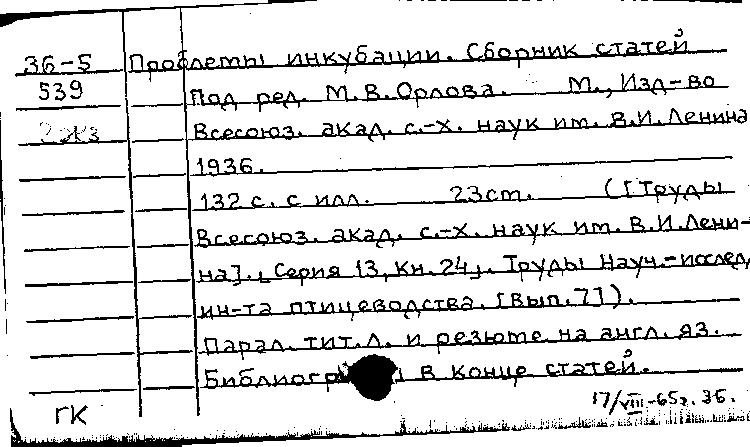 36-5 Проблемы инкубации. Сборник статей
539 Под ред. М.В.Орлова. М., Изд-во
2 экз Всесоюз. акад. с.-х. наук им. В.И.Ленина
1936.
132 с. с илл. 23см. ([Труды
Всесоюз. акад. с.-х. наук им. В.И.Лени-
на]. Серия 13, кн. 24. Труды Науч.-исслед.
ин-та птицеводства. [Вып. 7]).
Парал. тит. л. и резюме на англ. яз.
в конце статей.
17/VIII-65г. 36.
ГК